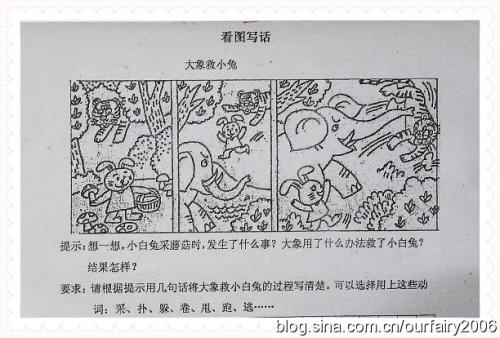 看图写话
大象救小兔
提示：想一想，小白兔采蘑菇时，发生了什么事？大象用了什么办法救了小白兔？
结果怎样？
要求：请根据提示用几句话将大象救小白兔的过程写清楚。可以选择用上这些动
词：采、扑、躲、卷、甩、跑、逃……
blog.sina.com.cn/ourfairy2006